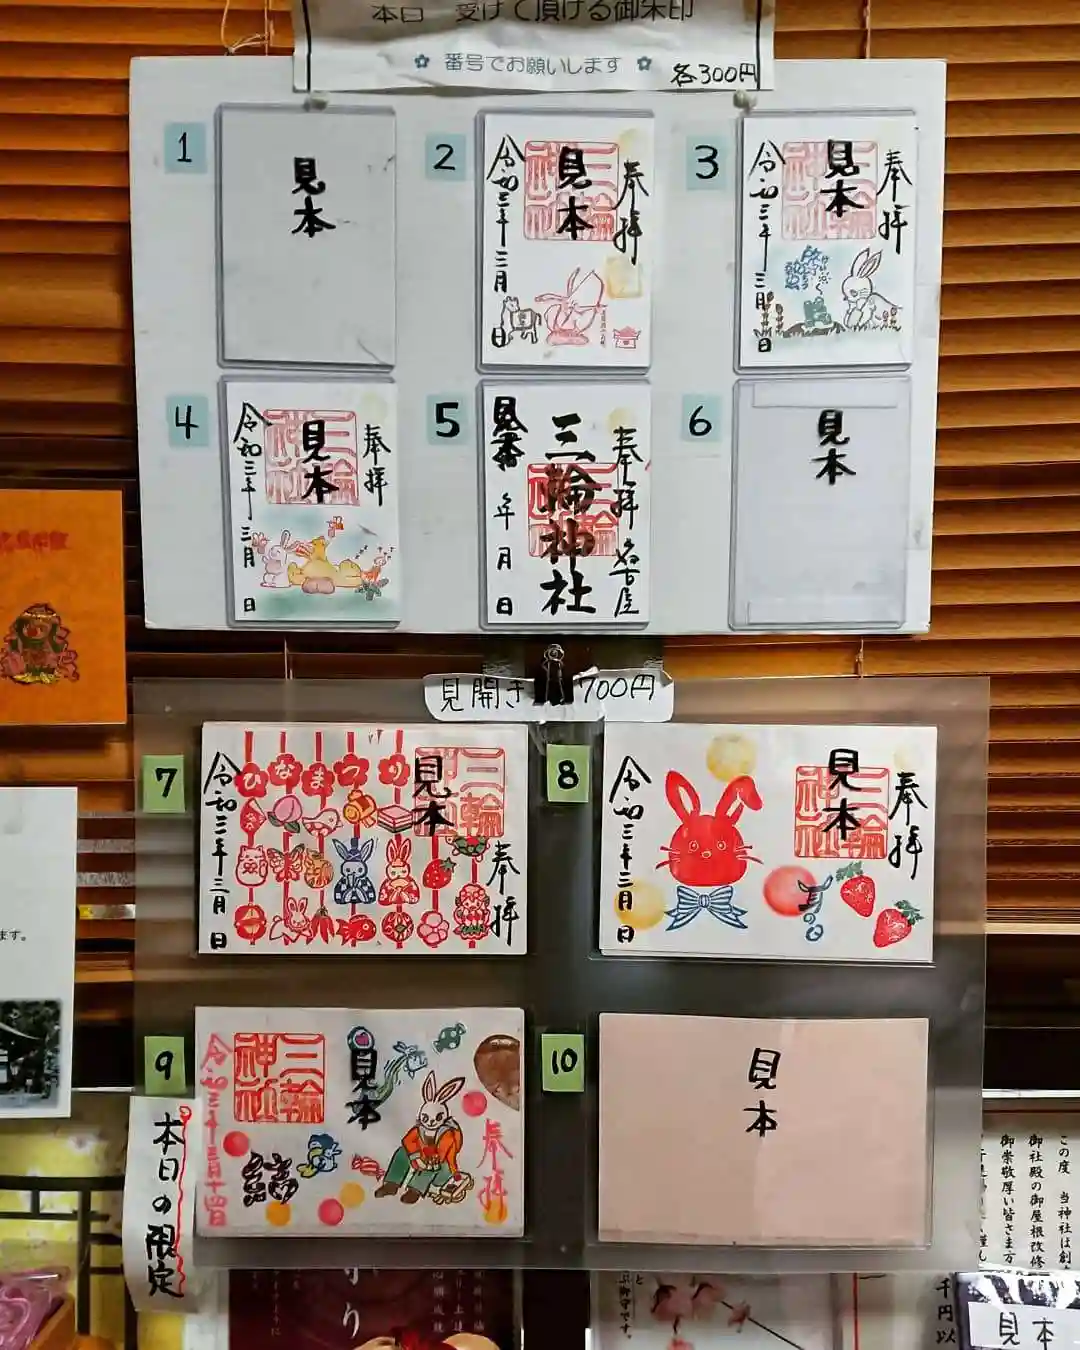 本日 受けて頂ける御朱印
✿ 番号でお願いします ✿
各300円
1
見本
2
奉拝
三輪神社
見本
令和三年三月 日
3
奉拝
三輪神社
見本
令和三年三月 日
4
奉拝
三輪神社
見本
令和三年三月 日
5
奉拝 名古屋
三輪神社
三輪神社
年 月 日
6
見本
見開き 700円
7
ひなまつり
三輪神社
見本
奉拝
令和三年三月 日
8
奉拝
三輪神社
見本
令和三年三月 日
9
奉拝
見本
三輪神社
令和三年三月十四日
本日の限定
10
見本
ます。
この度 当神社は創
御社殿の御屋根改修
御崇敬厚い皆さま方
千円以
見本